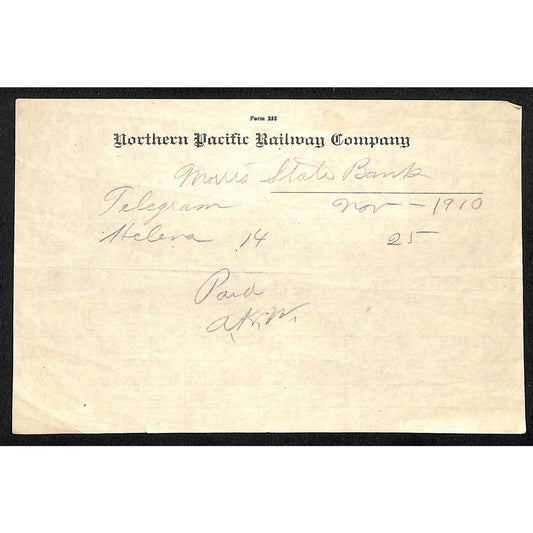 Form 235
Northern Pacific Railway Company
Morris State Bank
Telegram Nov - 1910
Helena 14 25
Paid